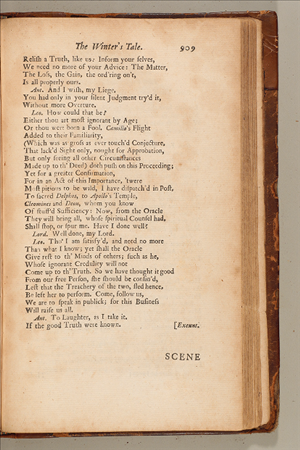 The Winter's Tale. 909
Relish a Truth, like us: Inform your selves,
We need no more of your Advice: The Matter,
The Loss, the Gain, the ord'ring on't,
Is all properly ours.
Ant. And I wish, my Liege,
You had only in your silent Judgment try'd it,
Without more Overture.
Leo. How could that be?
Either thou art most ignorant by Age;
Or thou wert born a Fool. Camillo's Flight
Added to their Familiarity,
(Which was as gross as ever touch'd Conjecture,
That lack'd Sight only, nought for Approbation,
But only seeing all other Circumstances
Made up to th' Deed) doth push on this Proceeding;
Yet for a greater Confirmation,
For in an Act of this Importance, 'twere
Most piteous to be wild, I have dispatch'd in Post,
To sacred Delphos, to Apollo's Temple,
Cleomines and Dion, whom you know
Of stuff'd Sufficiency: Now, from the Oracle
They will bring all, whose spiritual Counsel had,
Shall stop, or spur me. Have I done well?
Lord. Well done, my Lord.
Leo. Tho' I am satisfy'd, and need no more
Than what I know; yet shall the Oracle
Give rest to th' Minds of others; such as he,
Whose ignorant Credulity will not
Come up to th' Truth. So we have thought it good
From our free Person, she should be confin'd,
Lest that the Treachery of the two, fled hence,
Be left her to perform. Come, follow us,
We are to speak in publick; for this Business
Will raise us all.
Ant. To Laughter, as I take it,
If the good Truth were known. [Exeunt.
SCENE